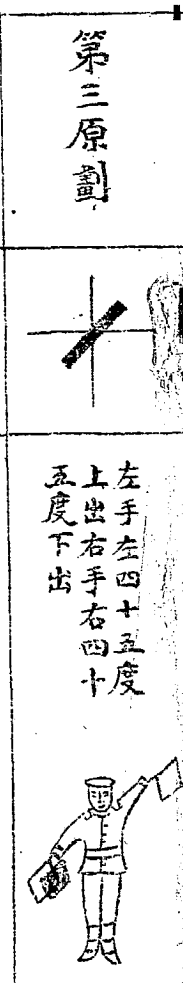 第三原劃
左手左四十五度
上出右手右四十
五度下出